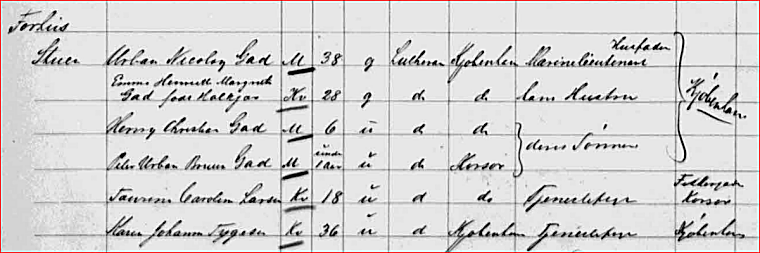 Forhus
Husfader
Stuen Urban Nicolay Gad M 38 g Lutheran Kjøbenhavn Marinelieutenant
Emma Henriette Margrethe
Gad født Halkjær Kv 28 g do do hans Hustru Kjøbenhavn
Henry Christian Gad M 6 u do do
deres Sønner
under
Peter Urban Bruun Gad M 1 aar u do Korsør
Laurine Caroline Larsen Kv 18 u d do Tjenestetyende
Korsør
Maren Johanne Tygesen Kv 36 u d Kjøbenhavn Tjenestetyende Kjøbenhavn